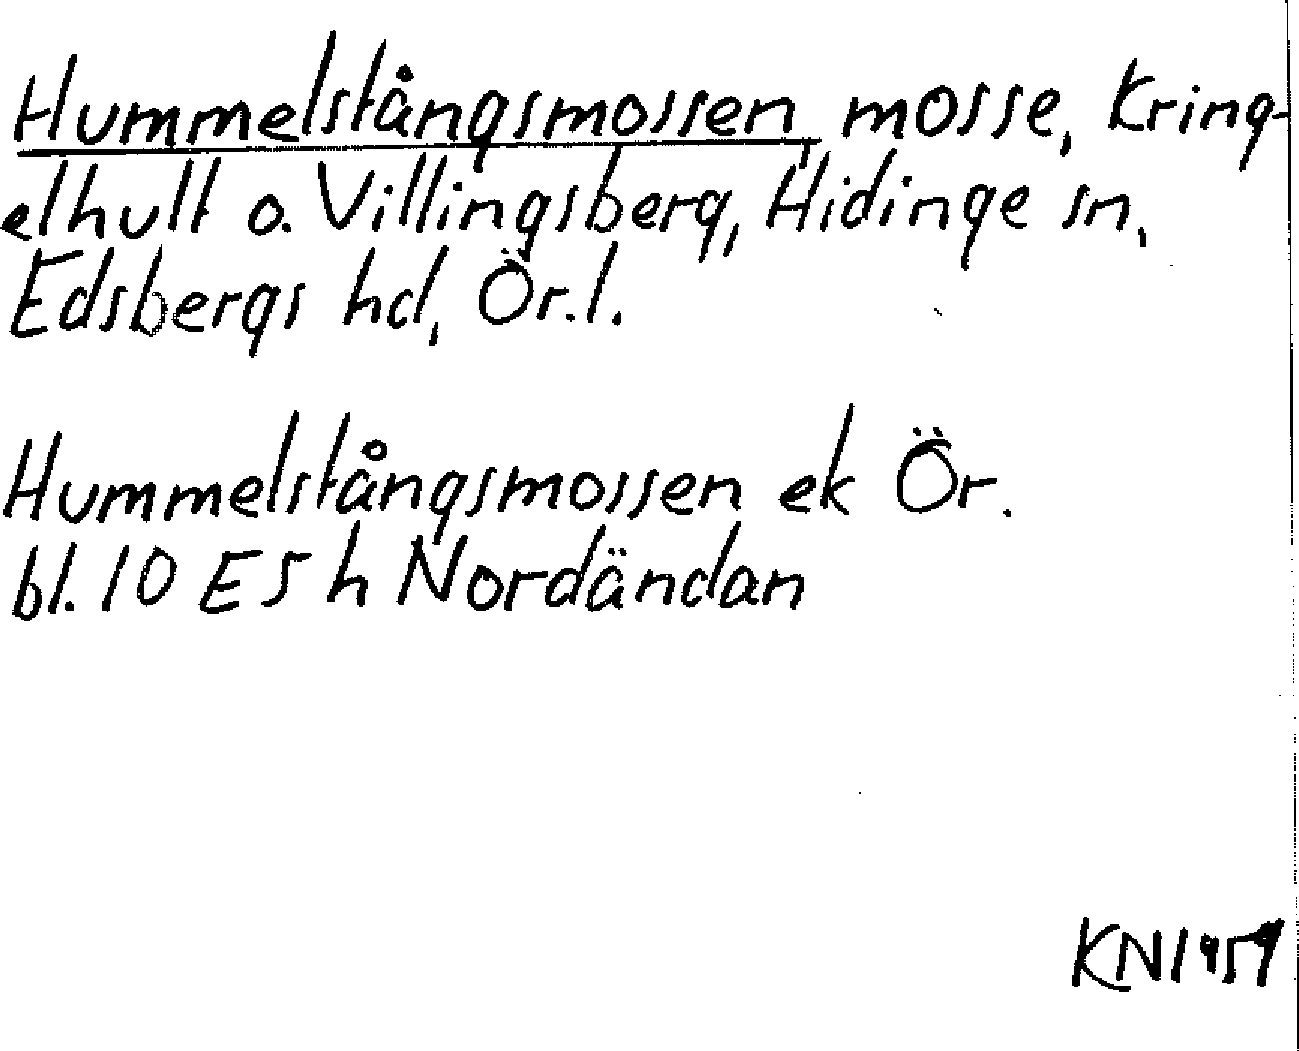 Hummelstångsmossen, mosse, Kring-
elhult o. Villingsberg, Hidinge sn,
Edsbergs hd, Ör.l.
Hummelstångsmossen ek Ör.
bl. 10 E 5 h Nordändan
KN 1959